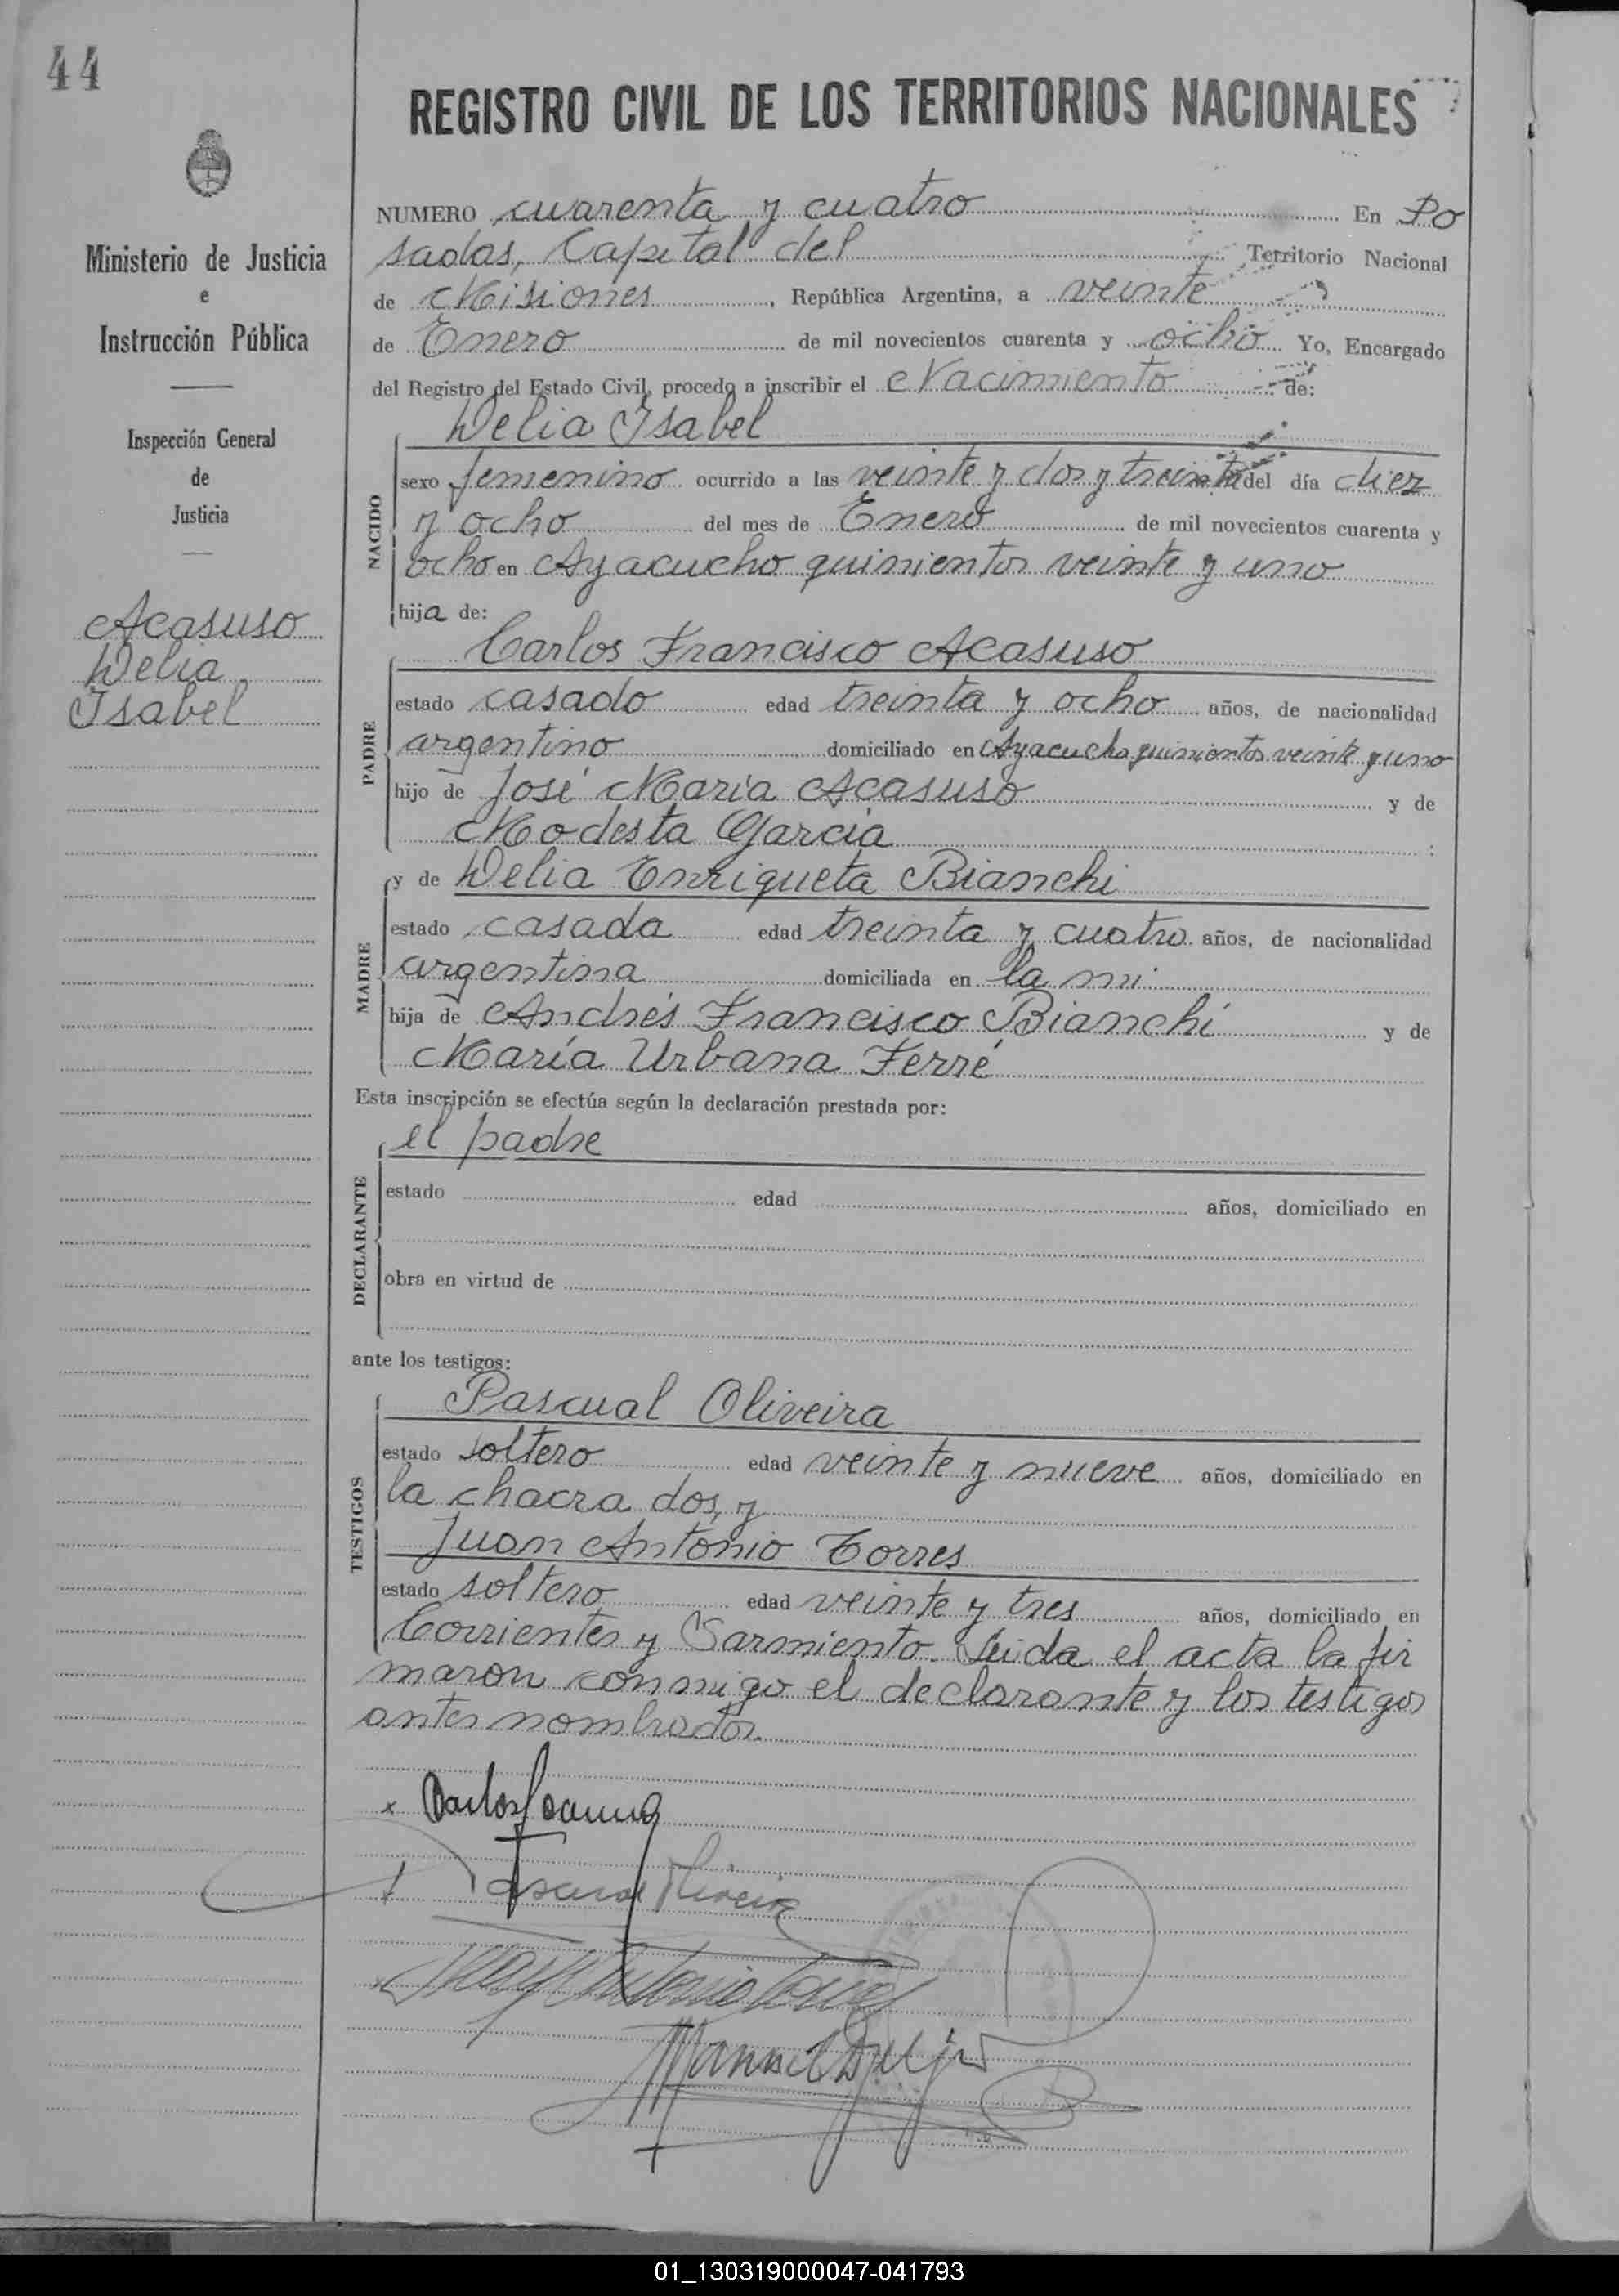 44
REGISTRO CIVIL DE LOS TERRITORIOS NACIONALES
Ministerio de Justicia
e
Instrucción Pública
Inspección General
de
Justicia
Acasuso
Delia
Isabel
NUMERO cuarenta y cuatro En Po
sadas, Capital del Territorio Nacional
de Misiones, República Argentina, a veinte
de Enero de mil novecientos cuarenta y ocho Yo, Encargado
del Registro del Estado Civil, procedo a inscribir el Nacimiento de:
NACIDO
Delia Isabel
sexo femenino ocurrido a las veinte y dos y treinta del día diez
y ocho del mes de Enero de mil novecientos cuarenta y
ocho en Ayacucho quinientos veinte y uno
hija de:
PADRE
Carlos Francisco Acasuso
estado casado edad treinta y ocho años, de nacionalidad
argentino domiciliado en Ayacucho quinientos veinte y uno
hijo de José María Acasuso y de
Modesta García
MADRE
y de Delia Enriqueta Bianchi
estado casada edad treinta y cuatro años, de nacionalidad
argentina domiciliada en la mi
hija de Andrés Francisco Bianchi y de
María Urbana Ferré
Esta inscripción se efectúa según la declaración prestada por:
DECLARANTE
el padre
estado edad años, domiciliado en
obra en virtud de
ante los testigos:
TESTIGOS
Pascual Oliveira
estado soltero edad veinte y nueve años, domiciliado en
la chacra dos, y
Juan Antonio Torres
estado soltero edad veinte y tres años, domiciliado en
Corrientes y Sarmiento. Leida el acta la fir
maron conmigo el declarante y los testigos
antes nombrados.
Pascual Oliveira
Juan Antonio Torres
01_130319000047-041793